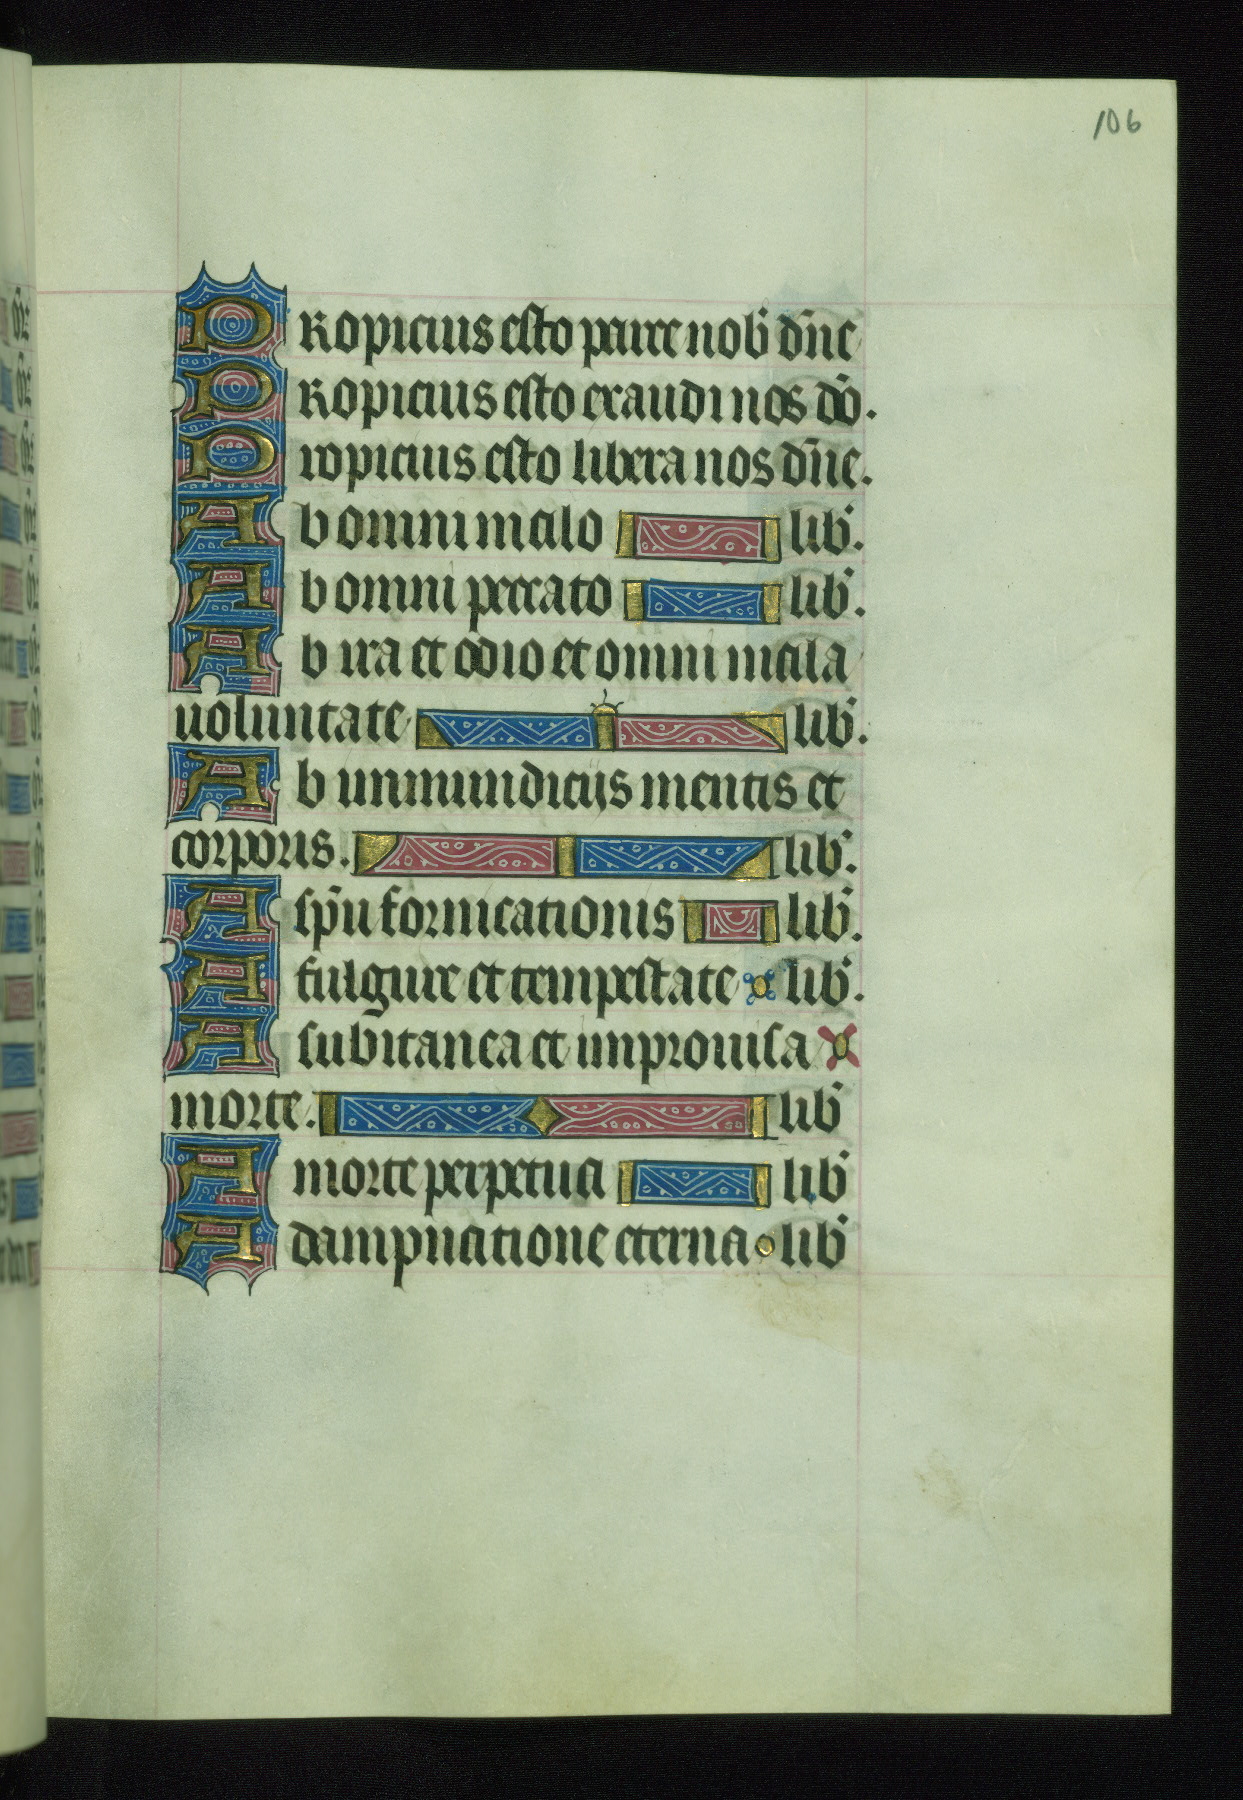 106
PRopicius esto parce nob̄ dn̄e
PRopicius esto exaudi nos dō.
Propicius esto libera nos dn̄e.
Ab omni malo lib̄.
Ab omni peccato lib̄.
Ab ira et odio et omni mala
uoluntate lib̄.
Ab inmundicijs mentis et
corporis. lib̄.
A sp̄u fornicationis lib̄.
A fulgure et tempestate lib̄.
A subitanea et improuisa
morte. lib̄
A morte perpetua lib̄
A dampnatione eterna lib̄